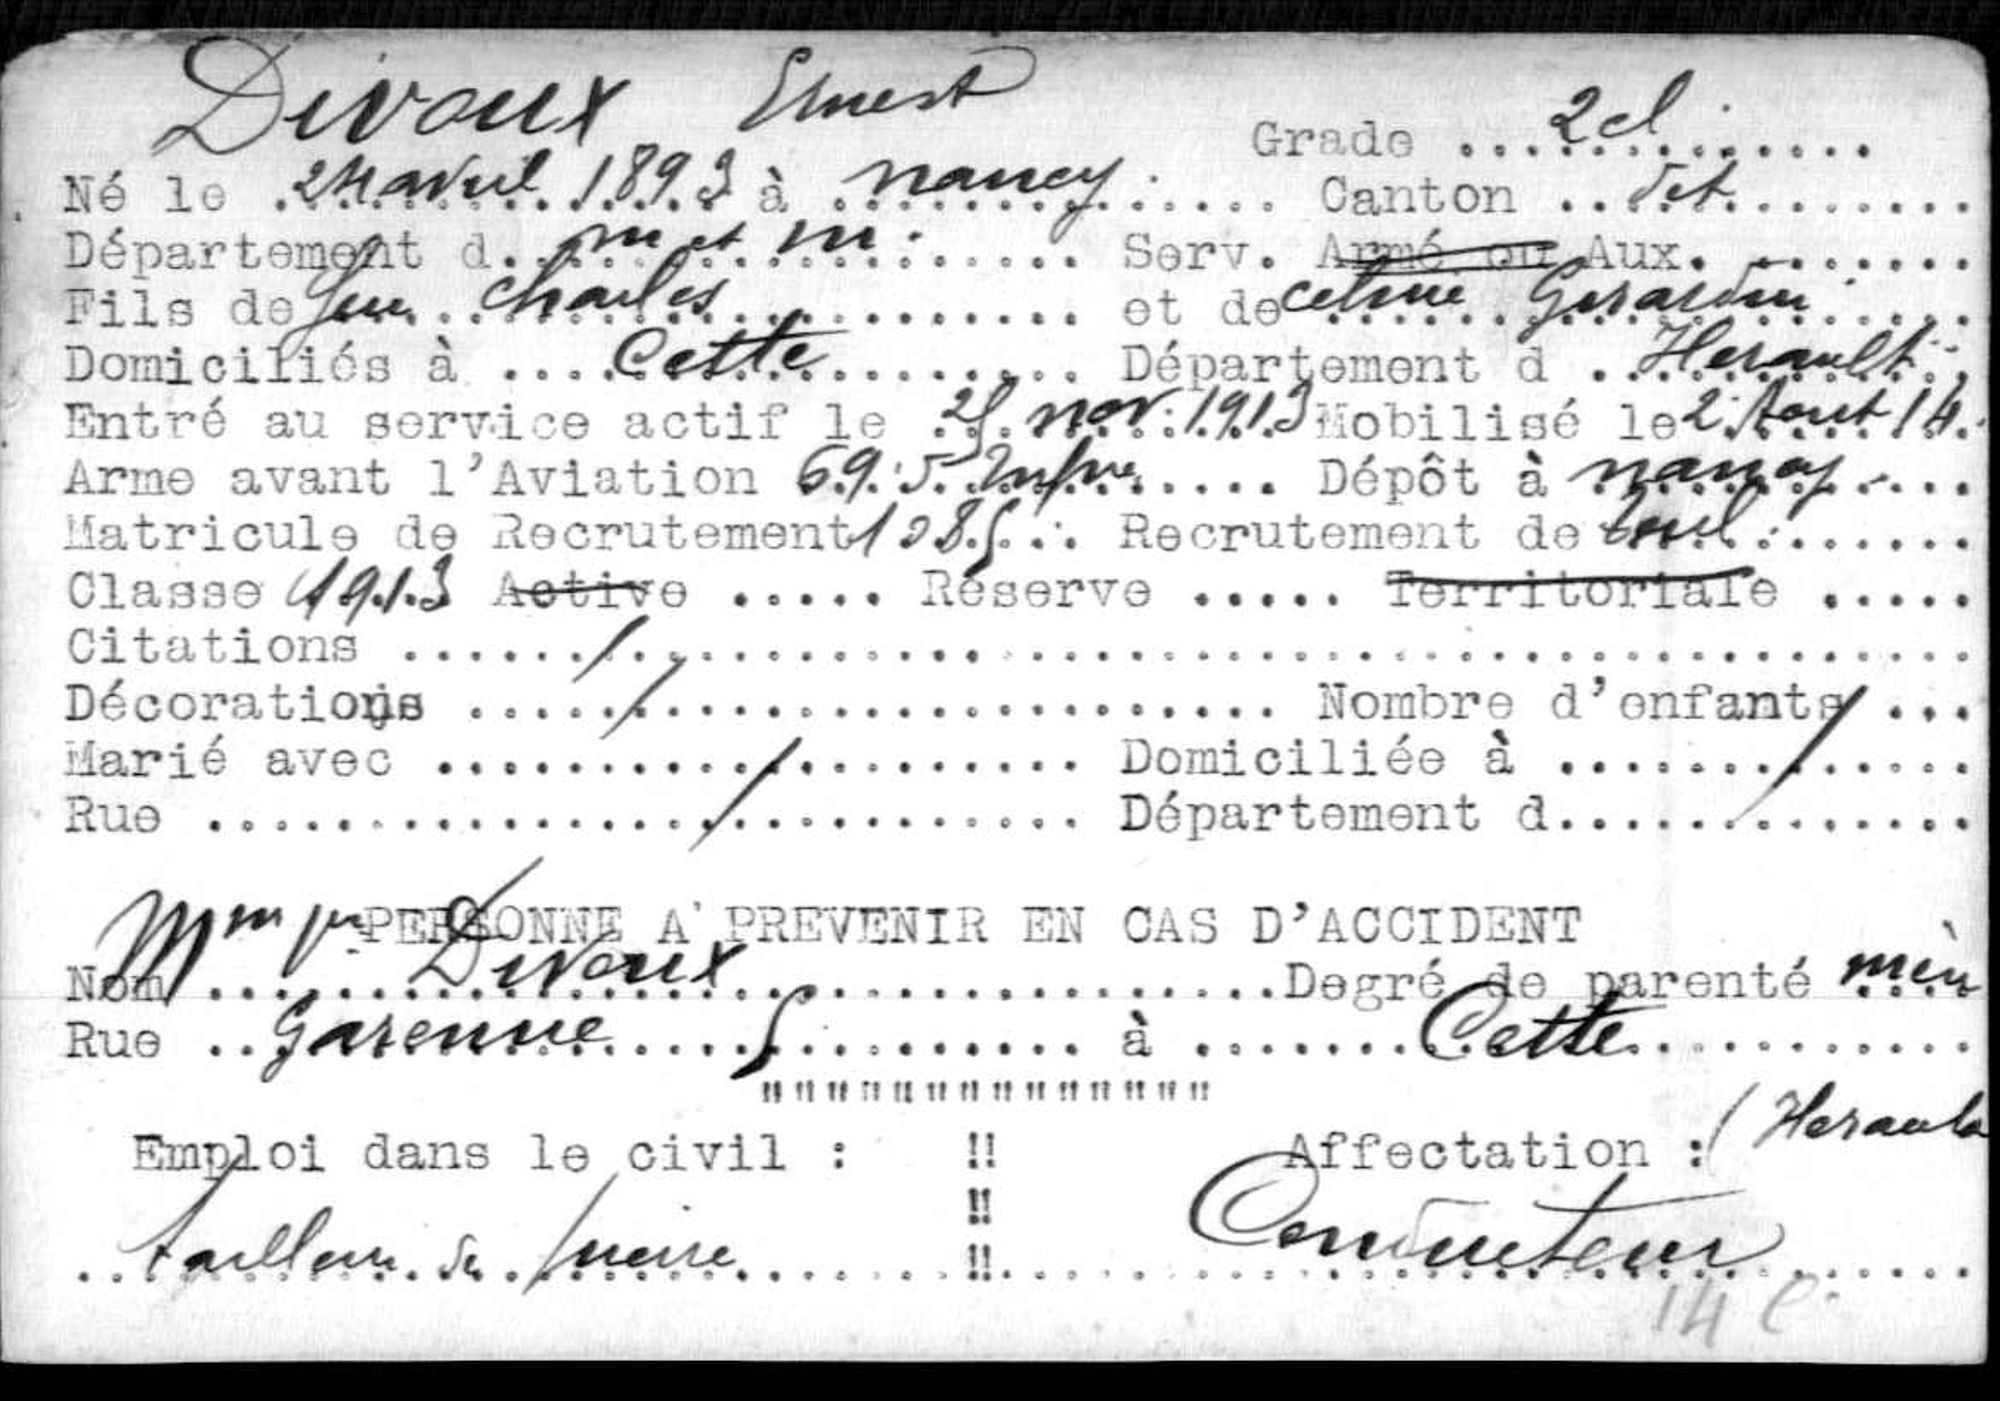 Divoux Ernest
Grade 2cl
Né le 24 avril 1893 à nancy. Canton dit
Département d. m et m. Serv. Armé ou Aux.
Fils de feu Charles et de Celine Gerardin
Domiciliés à Cette Département d Herault
Entré au service actif le nov. 1913 Mobilisé le 2 Aout 14.
Arme avant l'Aviation 69. Dépôt à nancy
Matricule de Recrutement 1085 Recrutement de toul
Classe 1913 Active ..... Réserve ..... Territoriale .....
Citations /
Décorations / Nombre d'enfants /
Marié avec / Domiciliée à /
Rue / Département d.
PERSONNE A PREVENIR EN CAS D'ACCIDENT
Nom Mm Divoux Degré de parenté mère
Rue Garenne 5 à Cette
"""""""""""""
(Herault
Emploi dans le civil : !! Affectation :
!!
tailleur de !! Conducteur
14 e